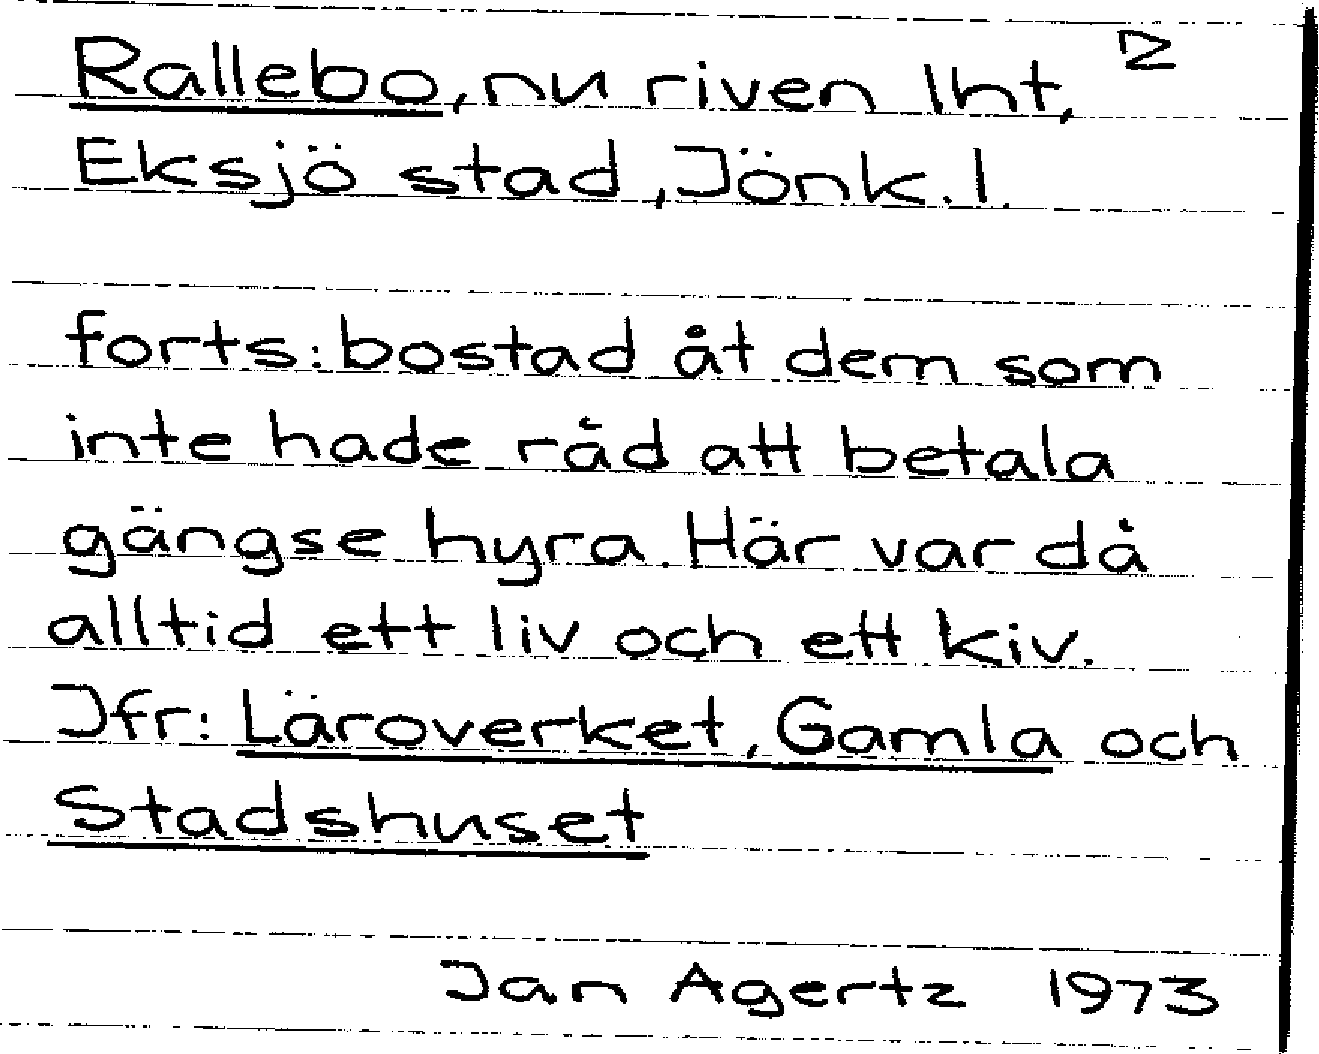 Rallebo, nu riven lht, 2
Eksjö stad, Jönk. l.
forts: bostad åt dem som
inte hade råd att betala
gängse hyra. Här var då
alltid ett liv och ett kiv.
Jfr: Läroverket, Gamla och
Stadshuset
Jan Agertz 1973